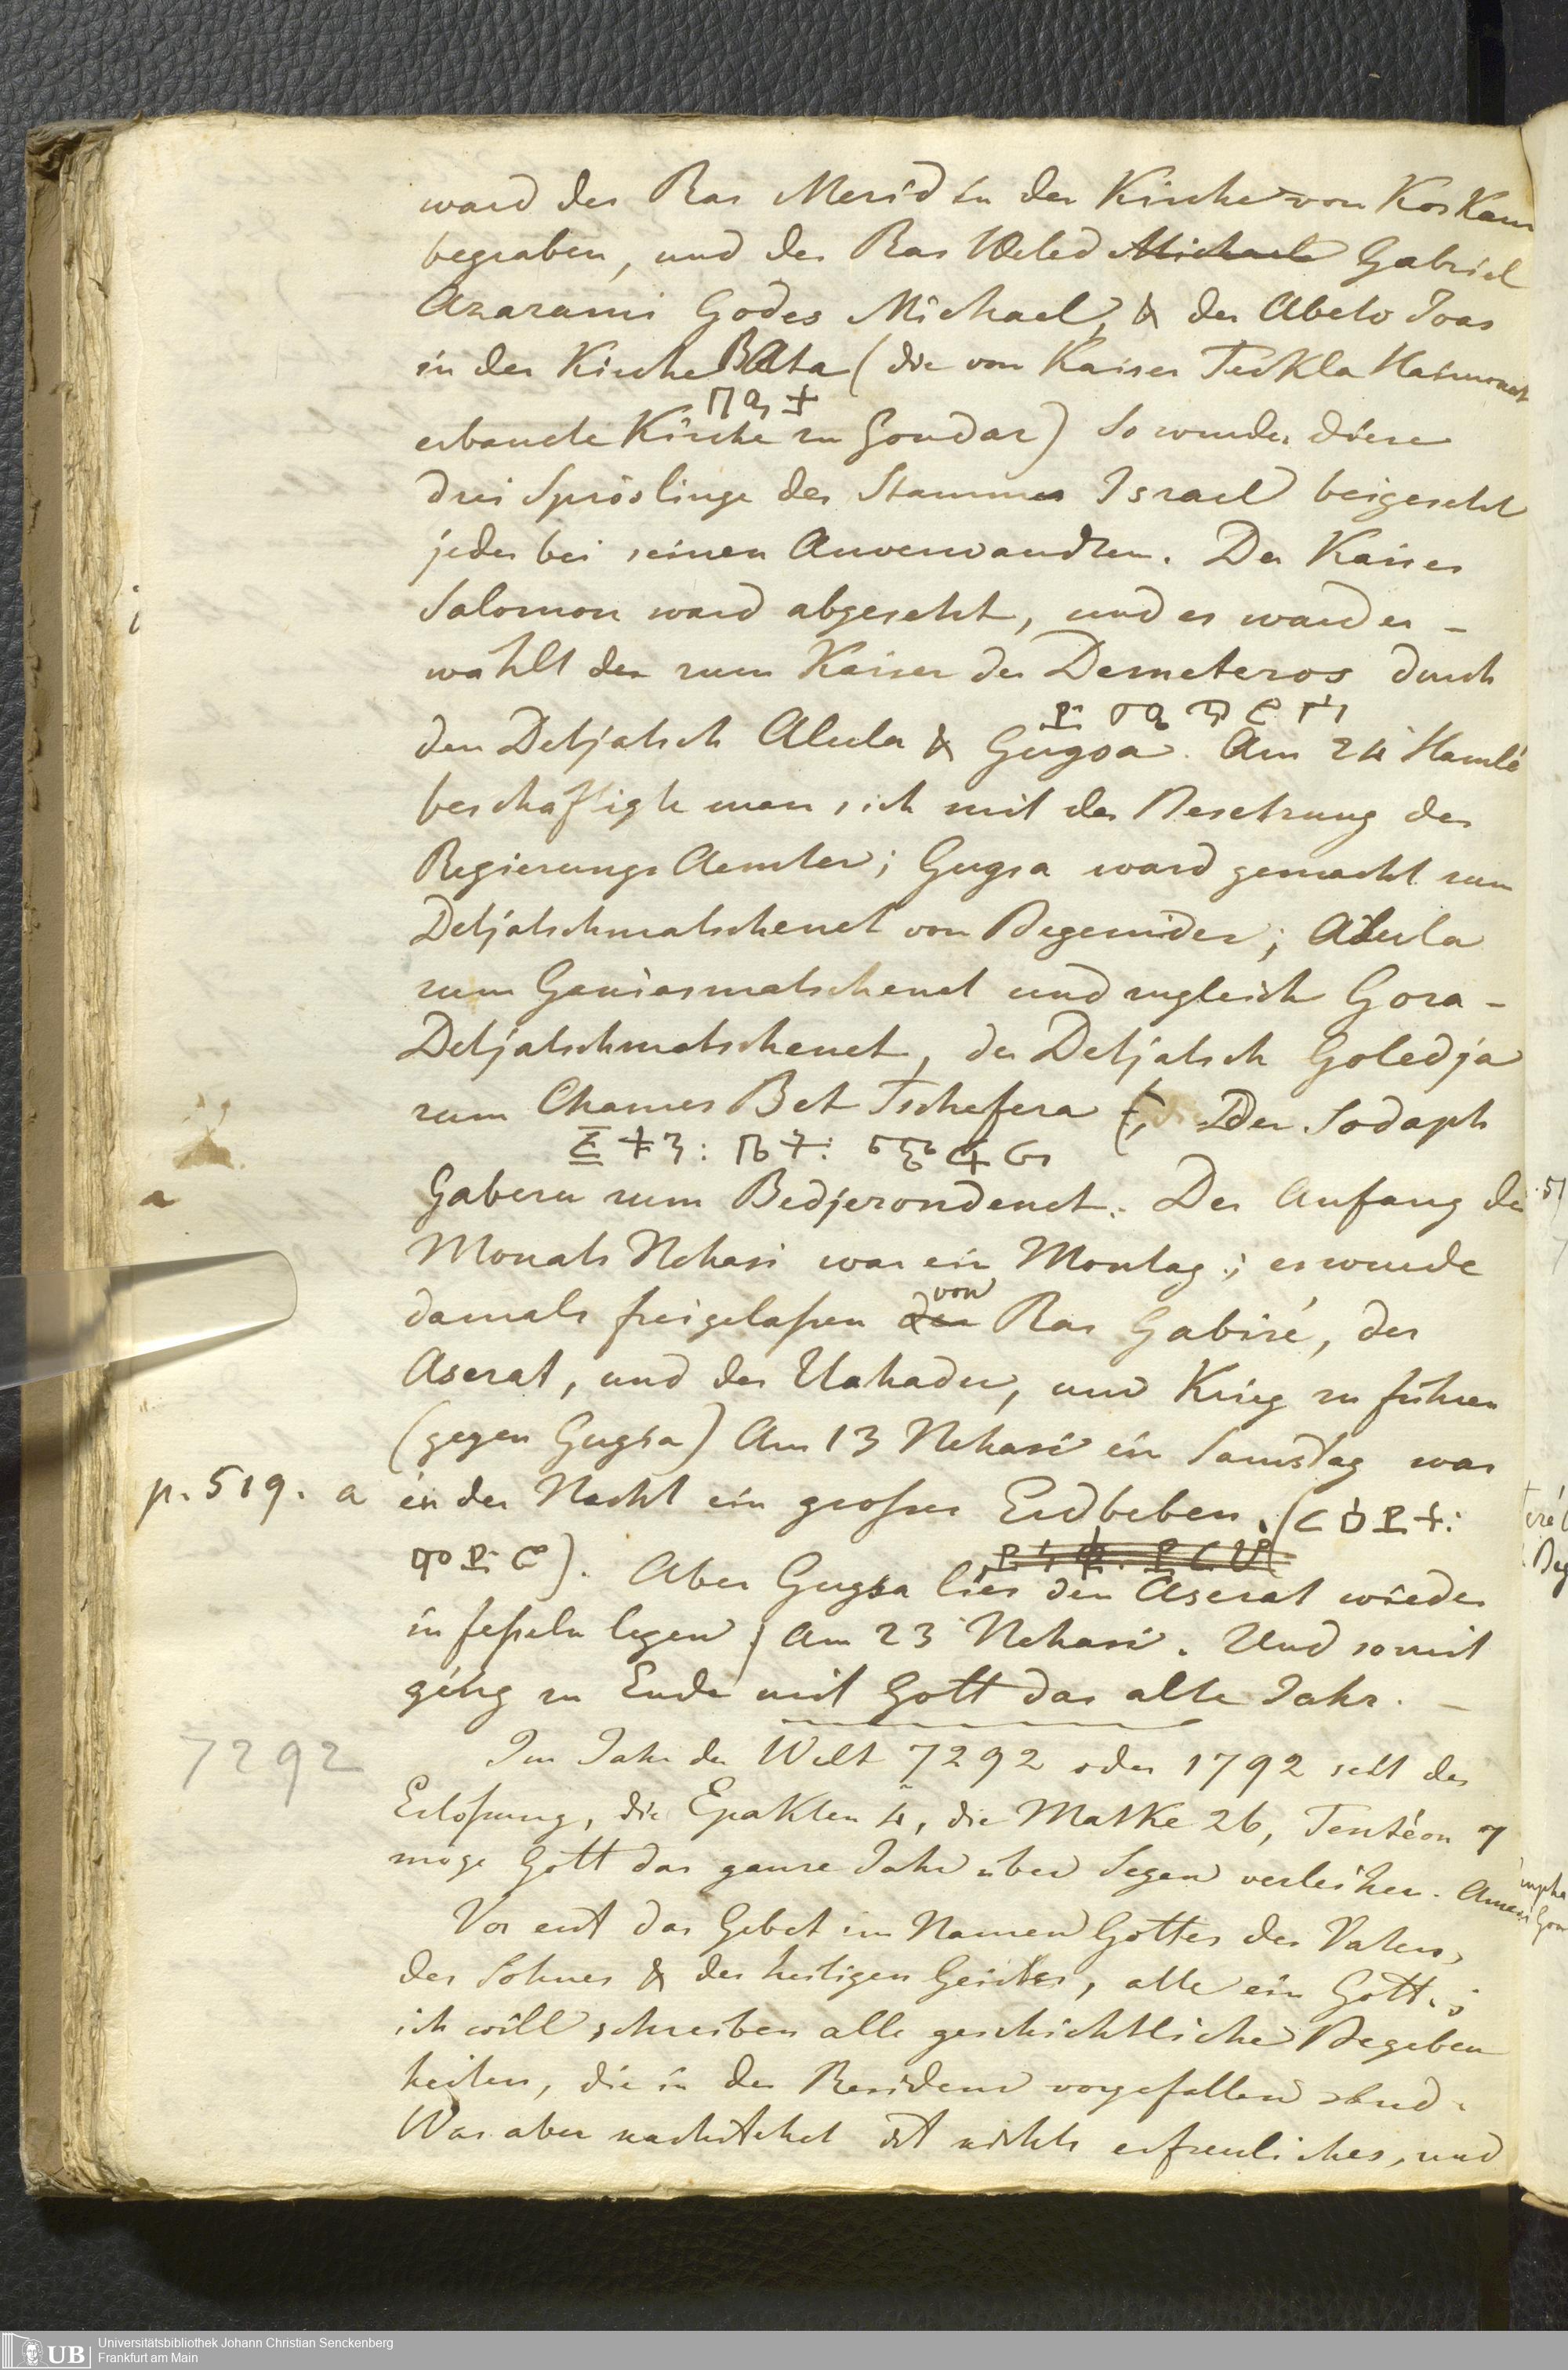 ward der Ras Merid in der Kirche von Koskam
begraben, und der Ras Weled Michael Gabriel
Azarami Godes Michael, & der Abeto Joas
in der Kirche BAta (die von Kaiser Teckla Haimanot
በኣታ
erbaute Kirche zu Gondar) So wurden diese
drei Spröslinge des Stammes Israel beigesetzt
jeder bei seinen Anverwandten. Der Kaiser
Salomon ward abgesetzt, und es ward er-
wählt der zum Kaiser der Demeteros durch
ደሜጥሮስ
den Detjatsch Alula & Gugsa. Am 24 Hamlé
beschäftigte man sich mit der Besetzung der
Regierungs Aemter; Gugsa ward gemacht zum
Detjatschmatschenet von Begemider; Alula
zum Geniasmatschenet und zugleich Gora-
Detjatschmatschenet, der Detjatsch Goledja
zum Chames Bet Tschefera (, Der Sodaph
ቤት:
Gaberu zum Bedjerondenet. Der Anfang des
Monats Nehasi war ein Montag; es wurde
damals freigelaßen den von Ras Gabiré, der
Aserat, und der Uahadu, um Krieg zu führen
(gegen Gugsa) Am 13 Nehasi ein Samstag war
p. 519. a in der Nacht ein großer Erdbeben. (ርዕደት:
ምድር). Aber Gugsa lies den Aserat wieder
in feßeln legen; am 23 Nehasi. Und somit
ging zu Ende mit Gott das alte Jahr. –
7292
Im Jahr der Welt 7292 oder 1792 seit der
Erlösung, die Epakten 4, die Matke 26, Tentéon 7
möge Gott das ganze Jahr über Segen verleihen. Amen
Vor erst das Gebet im Namen Gottes des Vaters,
des Sohnes & des heiligen Geistes, alle ein Gott;
ich will schreiben alle geschichtliche Begeben
heiten, die in der Residenz vorgefallen sind.
Was aber nachstehet ist nichts erfreuliches, und
a
UB Universitätsbibliothek Johann Christian Senckenberg
Frankfurt am Main